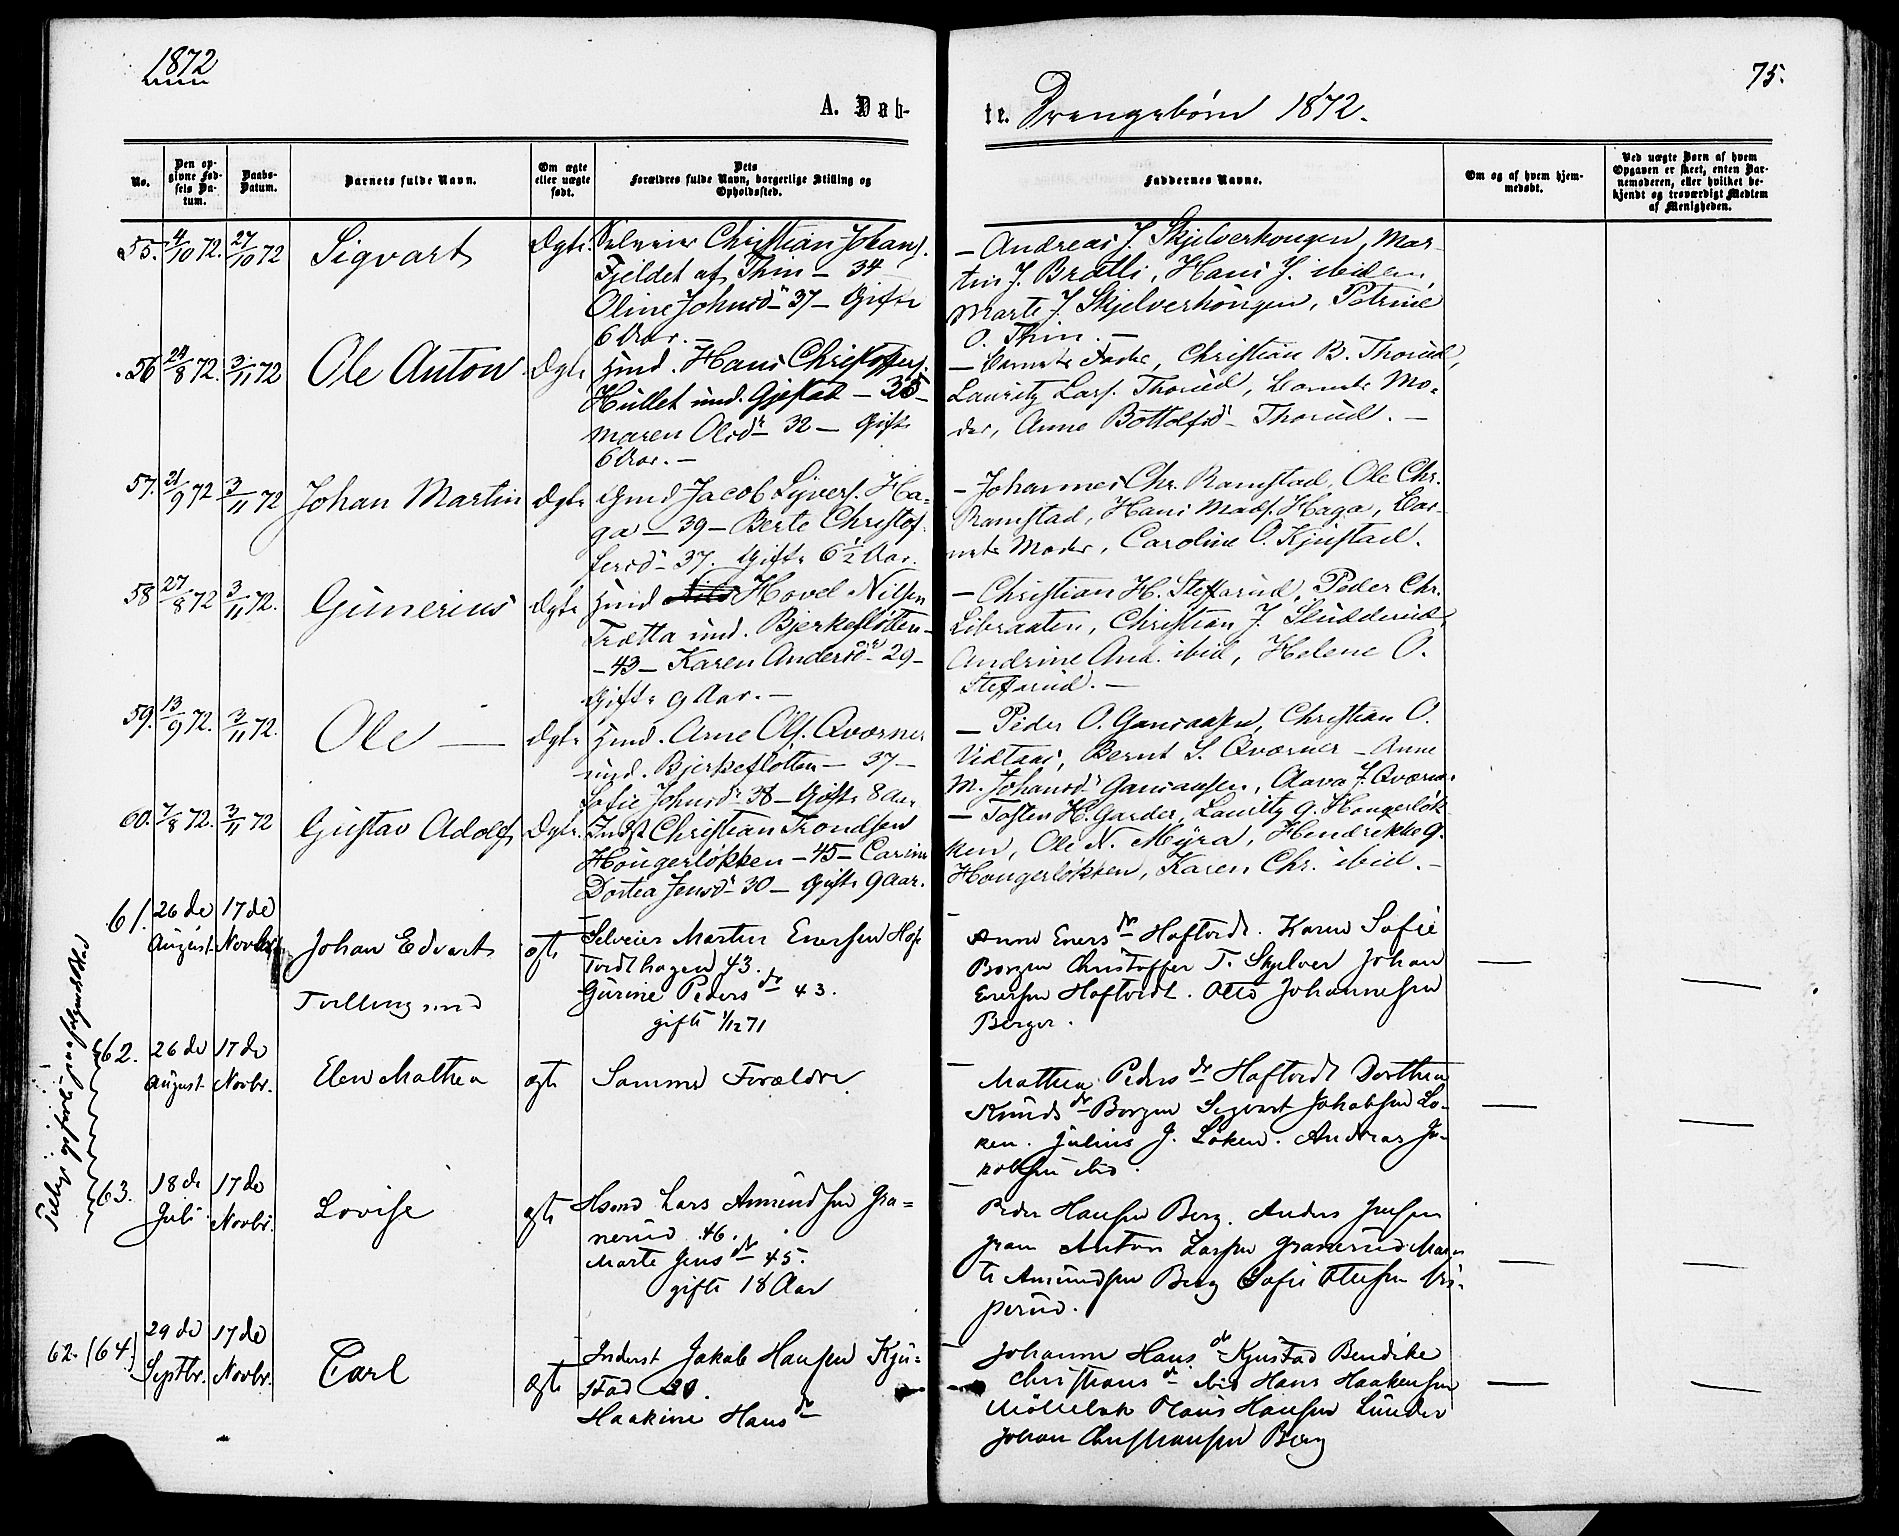 1872
75.
A. Døb-
te. Drengebörn 1872.
No.
Den op-
givne Fød-
sels Da-
tum.
Daabs-
Datum.
Barnets fulde Navn.
Om ægte
eller uægte
født.
Dets
Forældres fulde Navn, borgerlige Stilling og
Opholdssted.
Faddernes Navne.
Om og af hvem hjem-
medøbt.
Ved uægte Børn af hvem
Opgaven er skeet, enten Bar-
nemoderen, eller hvilket be-
kjendt og troværdigt Medlem
af Menigheden.
55. 4/10 72. 27/10 72 Sigvart Ægte Selveier Christian Johans.
Fjeldet af Thin – 34
Oline Johnsdr – 37 – Gifte
6 Aar. –
– Andreas J. Skjelverhougen, Mar-
tin J. Bratli, Hans J. ibidem,
Marte J. Skjelverhougen, Petrine
O. Thin. –
56 24/8 72. 3/11 72 Ole Anton Ægte Hmd. Hans Christoffers.
Hullet und. Gjestad – 35 –
Maren Olsdr – 32 – Gifte
6 Aar. –
– Barnets Fader, Christian B. Thorud,
Lauritz Lars. Thorud, Barnets Mo-
der, Anne Bottolfsdr – Thorud. –
57. 21/9 72 3/11 72 Johan Martin Ægte Gmd Jacob Syvers. Ha-
ga – 39 – Berte Christof-
fersdr – 37. Gifte 6½ Aar.
– Johannes Chr. Ramstad, Ole Chr.
Ramstad, Hans Mads. Haga, Bar-
nets Moder, Caroline O. Kjustad.
58 27/8 72 3/11 72. Gunerius Ægte Hmd Hovel Nilsen
Trætta und. Bjerkesløtten –
– 43 – Karen Andersdr – 29 –
Gifte 9 Aar. –
– Christian H. Steffarud, Peder Chr.
Libraaten, Christian J. Sludderud,
Andrine And. ibid, Helene O.
Steffarud. –
59. 13/9 72. 3/11 72. Ole – Ægte Hmd. Arne Ols. Qværner
und. Bjerkesløtten – 37 –
Sofie Johnsdr 38 – Gifte 8 Aar
– Peder O. Gansaasen, Christian O.
Vidtaas, Bernt S. Qværner – Anne
M. Johansdr Gansaasen, Olava J. Qværner.
60. 7/8 72. 3/11 72 Gustav Adolf Ægte. Indst Christian Trondsen
Hougerløkken – 45 – Carine
Dortea Jensdr – 30 – Gifte 9 Aar.
– Tosten H. Garder, Lauritz G. Hougerløk
ken, Ole N. Myra, Hendrikke G.
Hougerløkken, Karen Chr. ibid. –
61. 26de 17de
August Novbr. Johan Edvart ægte Selveier Martin Enersen Hof-
Tvillingsmd
tvedthagen 43.
Gurine Pedersdr 43.
gifte 1/12 71
Anne Enersdr Hoftvedt. Karen Sofie
Borgen Christoffer T. Skjelver Johan
Enersen Hoftvedt. Otto Johannesen
Berger.
62. 26de 17de
August Novbr. Elen Mathea ægte Samme Forældre
Mathea Pedersdr Hoftvedt Dorthea
Knudsdr Borgen Sigvart Jakobsen Lø-
ken. Julius J. Løken. Andreas Ja-
kobsen ibid.
63. 18de 17de
Juli Novbr. Lovise ægte Hsmd Lars Amundsen Gra-
nerud 46.
Marte Jensdr 45.
gifte 18 Aar
Peder Hansen Berg. Anders Jensen
Gran Anton Larsen Granerud Mar-
te Amundsen Berg Sofie Olesen Vis-
perud.
62. (64) 29de 17de
Septbr. Novbr. Carl ægte Inderst Jakob Hansen Kju-
stad 30.
Haakine Hansdr
Johanne Hansdr Kjustad Bendike
Christiansdr ibid Hans Haakensen
Møllebak Claus Hansen Lunder
Johan Christiansen Berg